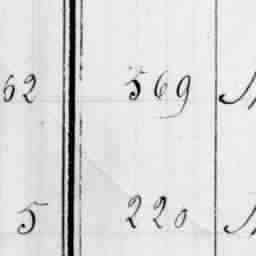 62 569
5 220